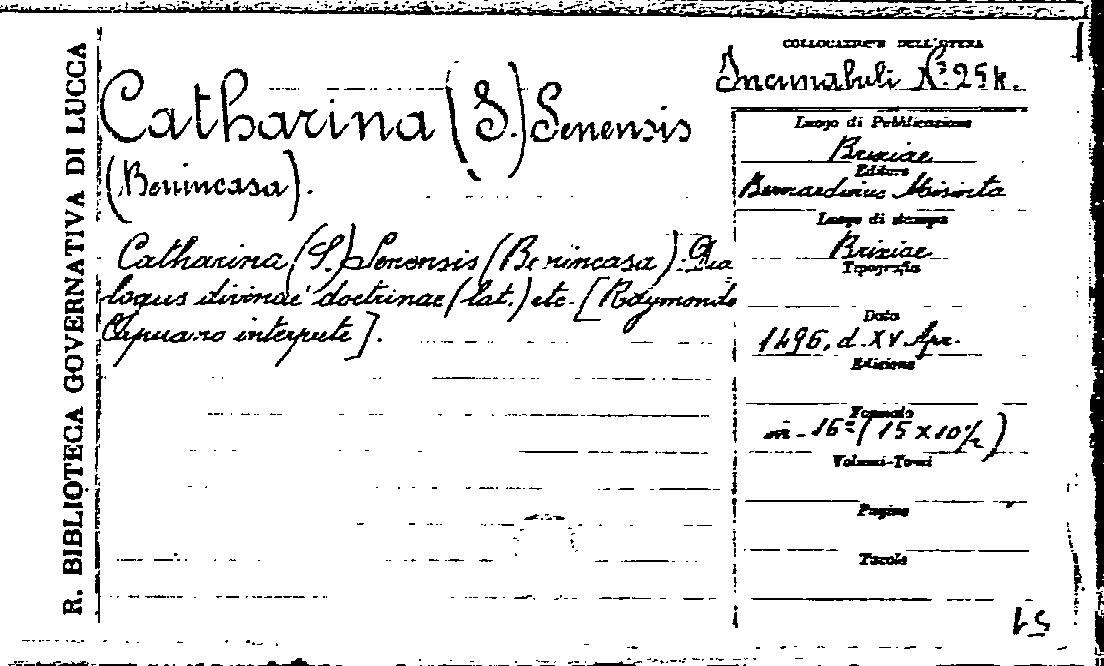 R. BIBLIOTECA GOVERNATIVA DI LUCCA
Catharina (S.) Senensis
(Benincasa).
Catharina (S.) Senensis (Benincasa). Dia
logus divinae doctrinae (lat.) etc. [Raymondo
Capuano interprete].
COLLOCAZIONE DELL'OPERA
Incunabuli N.º 25k.
Luogo di Pubblicazione
Brixiae
Editore
Bernardinus Misinta
Luogo di stampa
Brixiae
Tipografia
Data
1496, d. XV Apr.
Edizione
Formato
in-16º (15 x 10½)
Volumi-Tomi
Pagine
Tavole
51